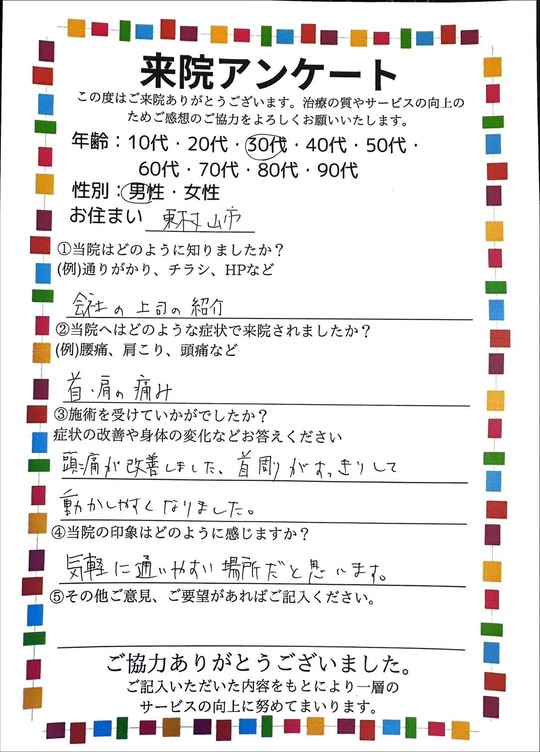 来院アンケート
この度はご来院ありがとうございます。治療の質やサービスの向上の
ためご感想のご協力をよろしくお願いいたします。
年齢：10代・20代・30代・40代・50代・
60代・70代・80代・90代
性別：男性・女性
お住まい 東村山市
①当院はどのように知りましたか？
(例)通りがかり、チラシ、HPなど
会社の上司の紹介
②当院へはどのような症状で来院されましたか？
(例)腰痛、肩こり、頭痛など
首・肩の痛み
③施術を受けていかがでしたか？
症状の改善や身体の変化などお答えください
頭痛が改善しました、首周がすっきりして
動かしやすくなりました。
④当院の印象はどのように感じますか？
気軽に通いやすい場所だと思います。
⑤その他ご意見、ご要望があればご記入ください。
ご協力ありがとうございました。
ご記入いただいた内容をもとにより一層の
サービスの向上に努めてまいります。